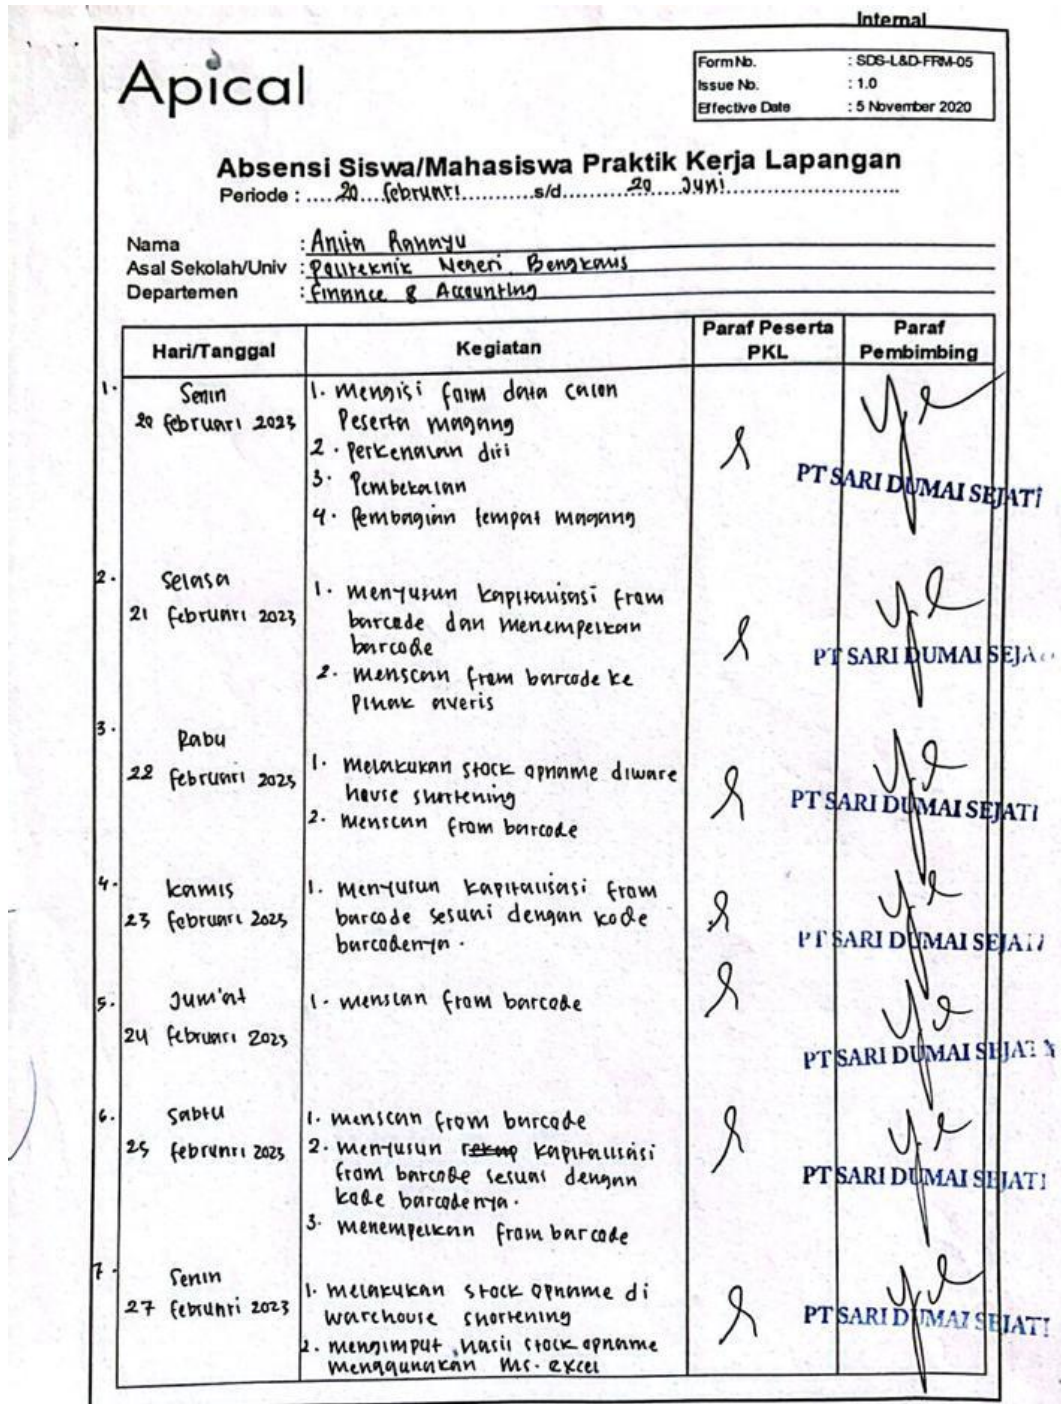 Internal
Apical
Form No. : SDS-L&D-FRM-05
Issue No. : 1.0
Effective Date : 5 November 2020
Absensi Siswa/Mahasiswa Praktik Kerja Lapangan
Periode : .....20....februari...........s/d.........20...Juni...........................
Nama : Anita Rahayu
Asal Sekolah/Univ : Politeknik Negeri Bengkalis
Departemen : Finance & Accounting
Hari/Tanggal Kegiatan Paraf Peserta PKL Paraf Pembimbing
1. Senin
20 februari 2023
1. mengisi form data calon
Peserta magang
2. Perkenalan diri
3. Pembekalan
4. Pembagian tempat magang
PT SARI DUMAI SEJATI
2. Selasa
21 februari 2023
1. menyusun kapitalisasi from
barcode dan menempelkan
barcode
2. menscan from barcode ke
Pihak averis
PT SARI DUMAI SEJA
3. Rabu
22 februari 2023
1. melakukan stock opname diware
house shortening
2. menscan from barcode
PT SARI DUMAI SEJATI
4. kamis
23 februari 2023
1. menyusun kapitalisasi from
barcode sesuai dengan kode
barcodenya.
PT SARI DUMAI SEJATI
5. Jum'at
24 februari 2023
1. menscan from barcode
PT SARI DUMAI SEJATI
6. Sabtu
25 februari 2023
1. menscan from barcode
2. menyusun rekap kapitalisasi
from barcode sesuai dengan
kode barcodenya.
3. menempelkan from barcode
PT SARI DUMAI SEJATI
7. Senin
27 februari 2023
1. melakukan stock opname di
warehouse shortening
2. mengimput hasil stock opname
menggunakan Ms. excel
PT SARI DUMAI SEJATI